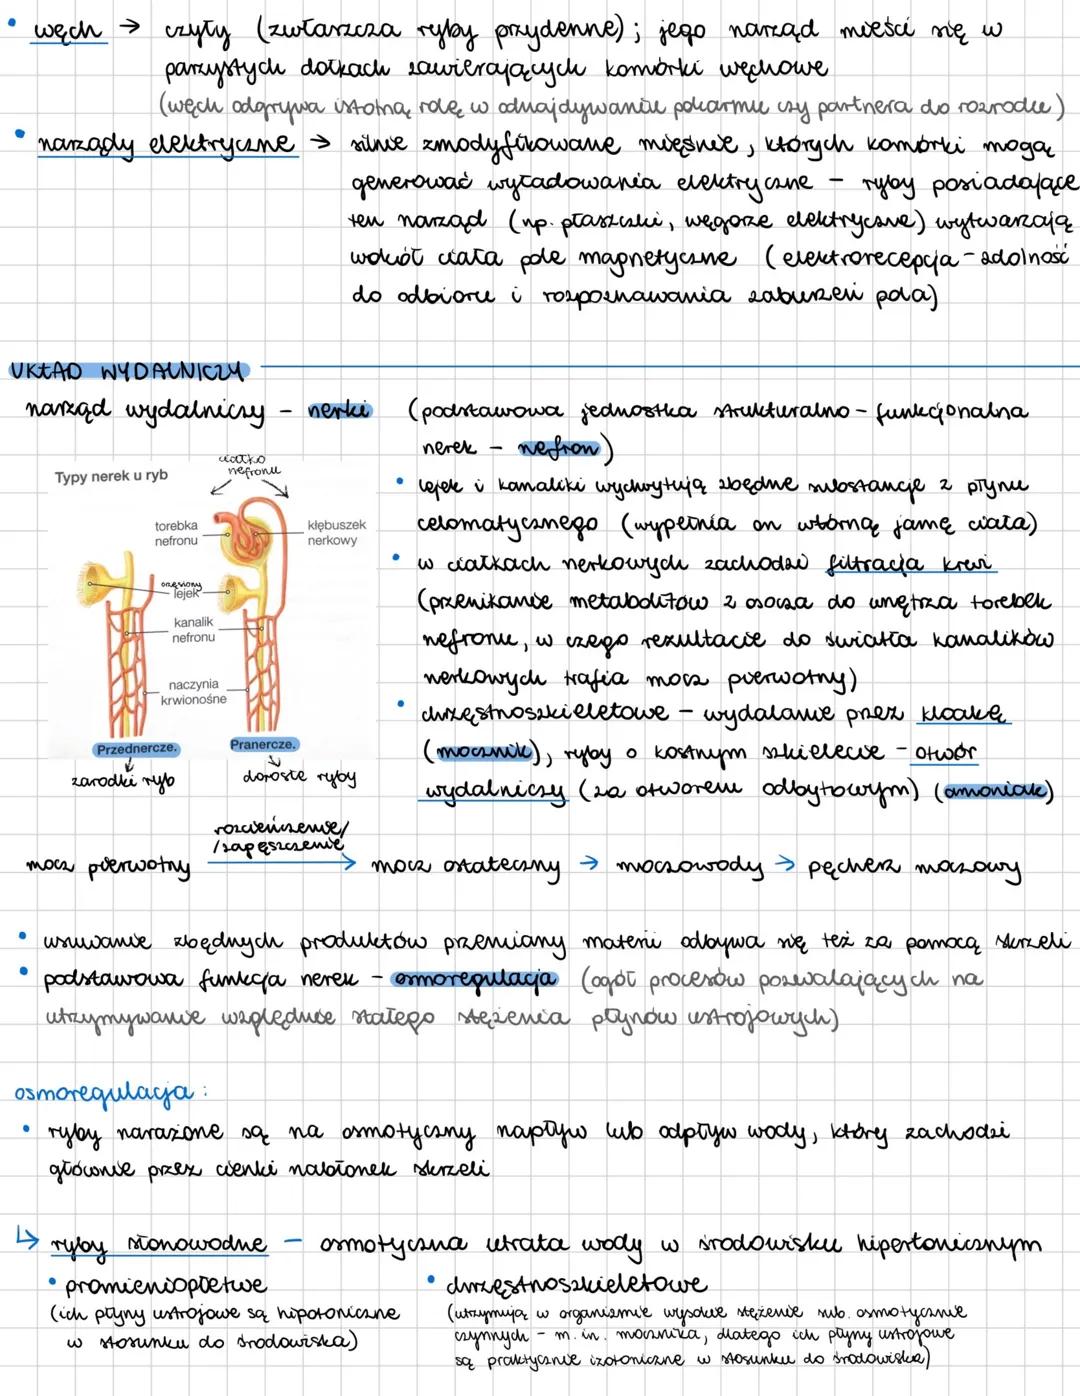 • węch → czuły (zwłaszcza ryby przydenne); jego narząd mieści się w
parzystych dołkach zawierających komórki węchowe
(węch odgrywa istotną rolę w odnajdywaniu pokarmu czy partnera do rozrodu)
• narządy elektryczne → silnie zmodyfikowane mięśnie, których komórki mogą
generować wyładowania elektryczne – ryby posiadające
ten narząd (np. płaszczki, węgorze elektryczne) wytwarzają
wokół ciała pole magnetyczne (elektrorecepcja – zdolność
do odbioru i rozpoznawania zaburzeń pola)
UKŁAD WYDALNICZY
narząd wydalniczy – nerki (podstawowa jednostka strukturalno – funkcjonalna
nerek – nefron)
Typy nerek u ryb
ciałko
nefronu
torebka
nefronu
kłębuszek
nerkowy
orzęsiony
lejek
kanalik
nefronu
naczynia
krwionośne
Przednercze.
Pranercze.
zarodki ryb
dorosłe ryby
• lejek i kanaliki wychwytują zbędne substancje z płynu
celomatycznego (wypełnia on wtórną jamę ciała)
• w ciałkach nerkowych zachodzi filtracja krwi
(przenikanie metabolitów z osocza do wnętrza torebek
nefronu, w czego rezultacie do światła kanalików
nerkowych trafia mocz pierwotny)
• chrzęstnoszkieletowe – wydalanie przez kloakę
(mocznik), ryby o kostnym szkielecie – otwór
wydalniczy (za otworem odbytowym) (amoniak)
rozcieńczenie/
/zagęszczenie
mocz pierwotny → mocz ostateczny → moczowody → pęcherz moczowy
• usuwanie zbędnych produktów przemiany materii odbywa się też za pomocą skrzeli
• podstawowa funkcja nerek – osmoregulacja (ogół procesów pozwalających na
utrzymywanie względnie stałego stężenia płynów ustrojowych)
osmoregulacja:
• ryby narażone są na osmotyczny napływ lub odpływ wody, który zachodzi
głównie przez cienki nabłonek skrzeli
↳ ryby słonowodne – osmotyczna utrata wody w środowisku hipertonicznym
• promieniopłetwe
(ich płyny ustrojowe są hipotoniczne
w stosunku do środowiska)
• chrzęstnoszkieletowe
(utrzymują w organizmie wysokie stężenie sub. osmotycznie
czynnych – m.in. mocznika, dlatego ich płyny ustrojowe
są praktycznie izotoniczne w stosunku do środowiska)